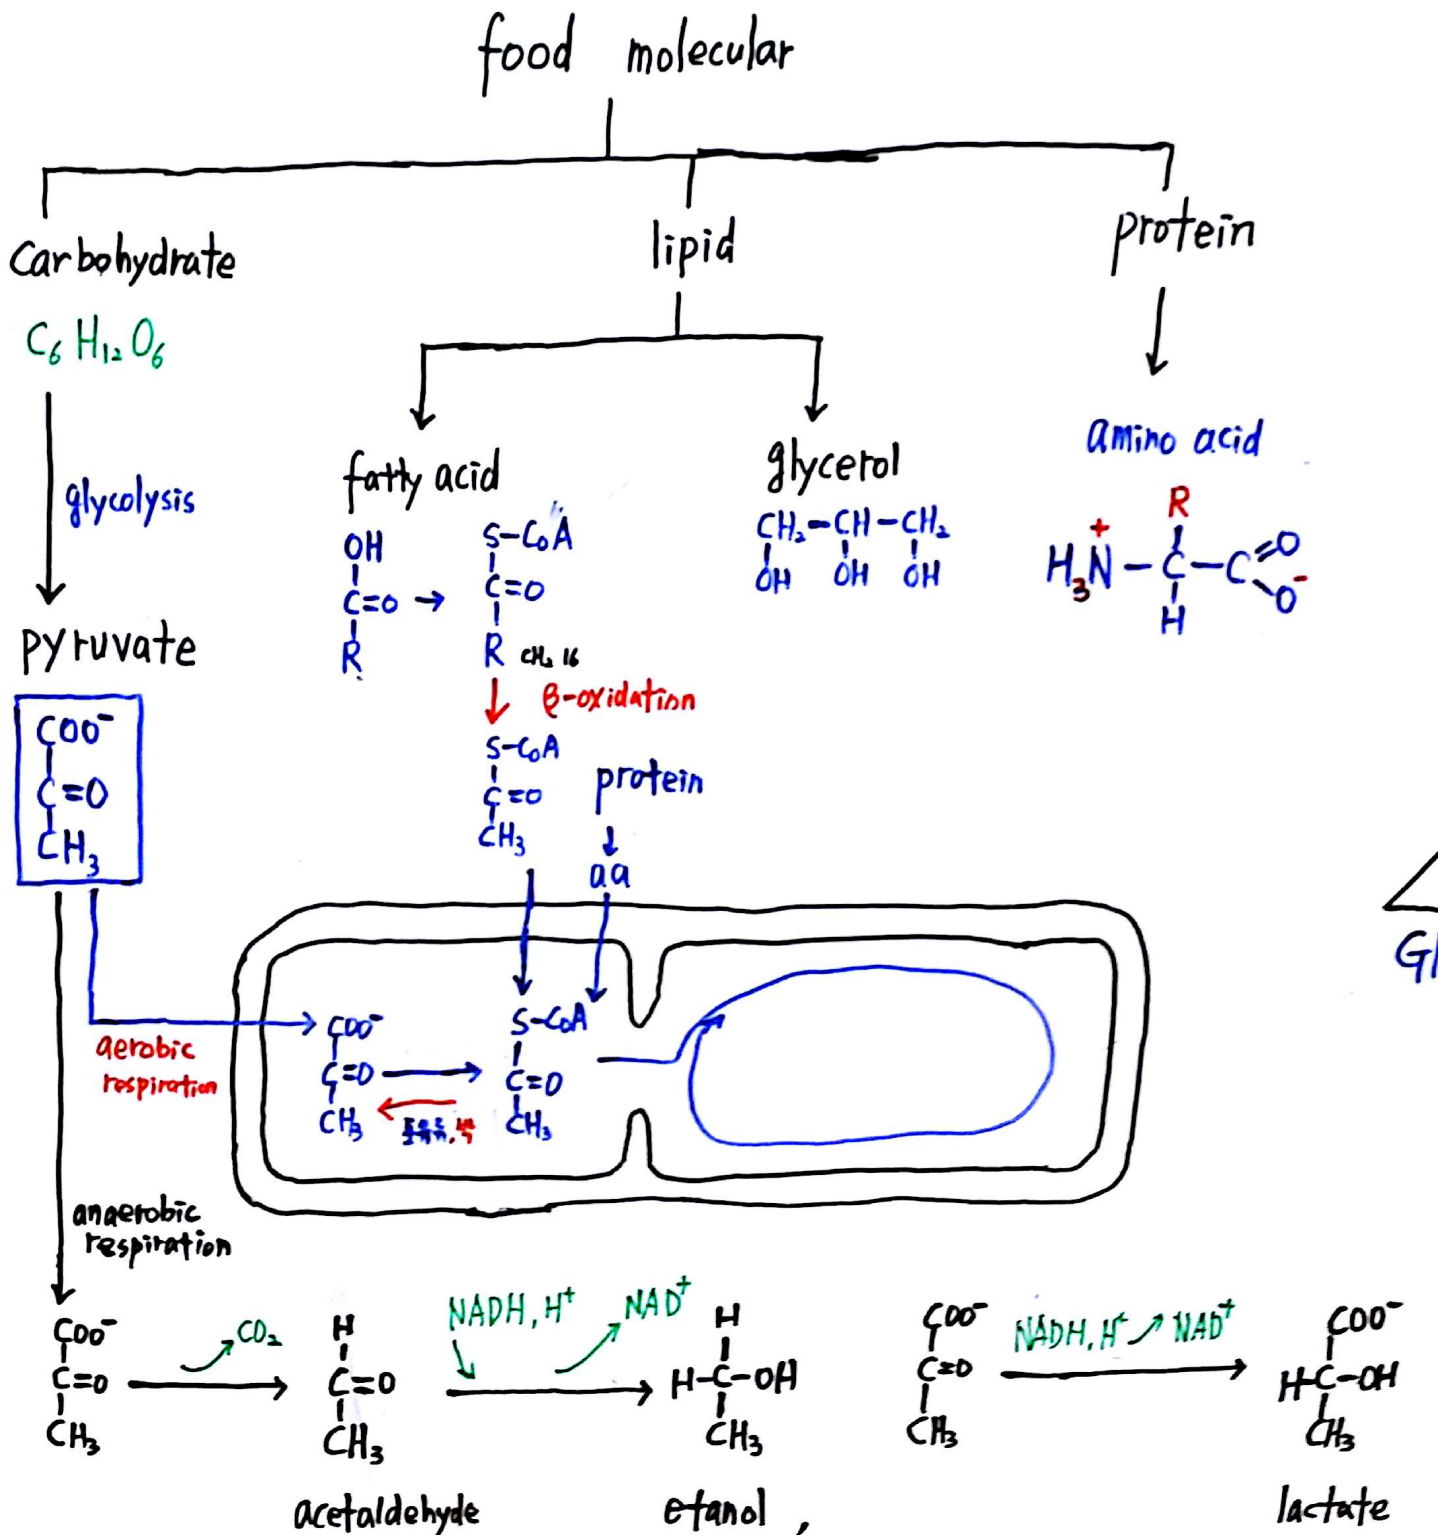 food molecular
carbohydrate
C₆H₁₂O₆
glycolysis
pyruvate
COO⁻
C=O
CH₃
lipid
fatty acid
OH
C=O →
R
S-CoA
C=O
R CH₂ 16
β-oxidation
S-CoA
C=O
CH₃
glycerol
CH₂-CH-CH₂
OH OH OH
protein
amino acid
R
H₃N⁺-C-C=O
O⁻
H
protein
aa
aerobic
respiration
COO⁻
C=O
CH₃
S-CoA
C=O
CH₃
Gl
anaerobic
respiration
COO⁻
C=O
CH₃
CO₂
H
C=O
CH₃
acetaldehyde
NADH, H⁺
NAD⁺
H
H-C-OH
CH₃
etanol,
COO⁻
C=O
CH₃
NADH, H⁺ ↗ NAD⁺
COO⁻
H-C-OH
CH₃
lactate